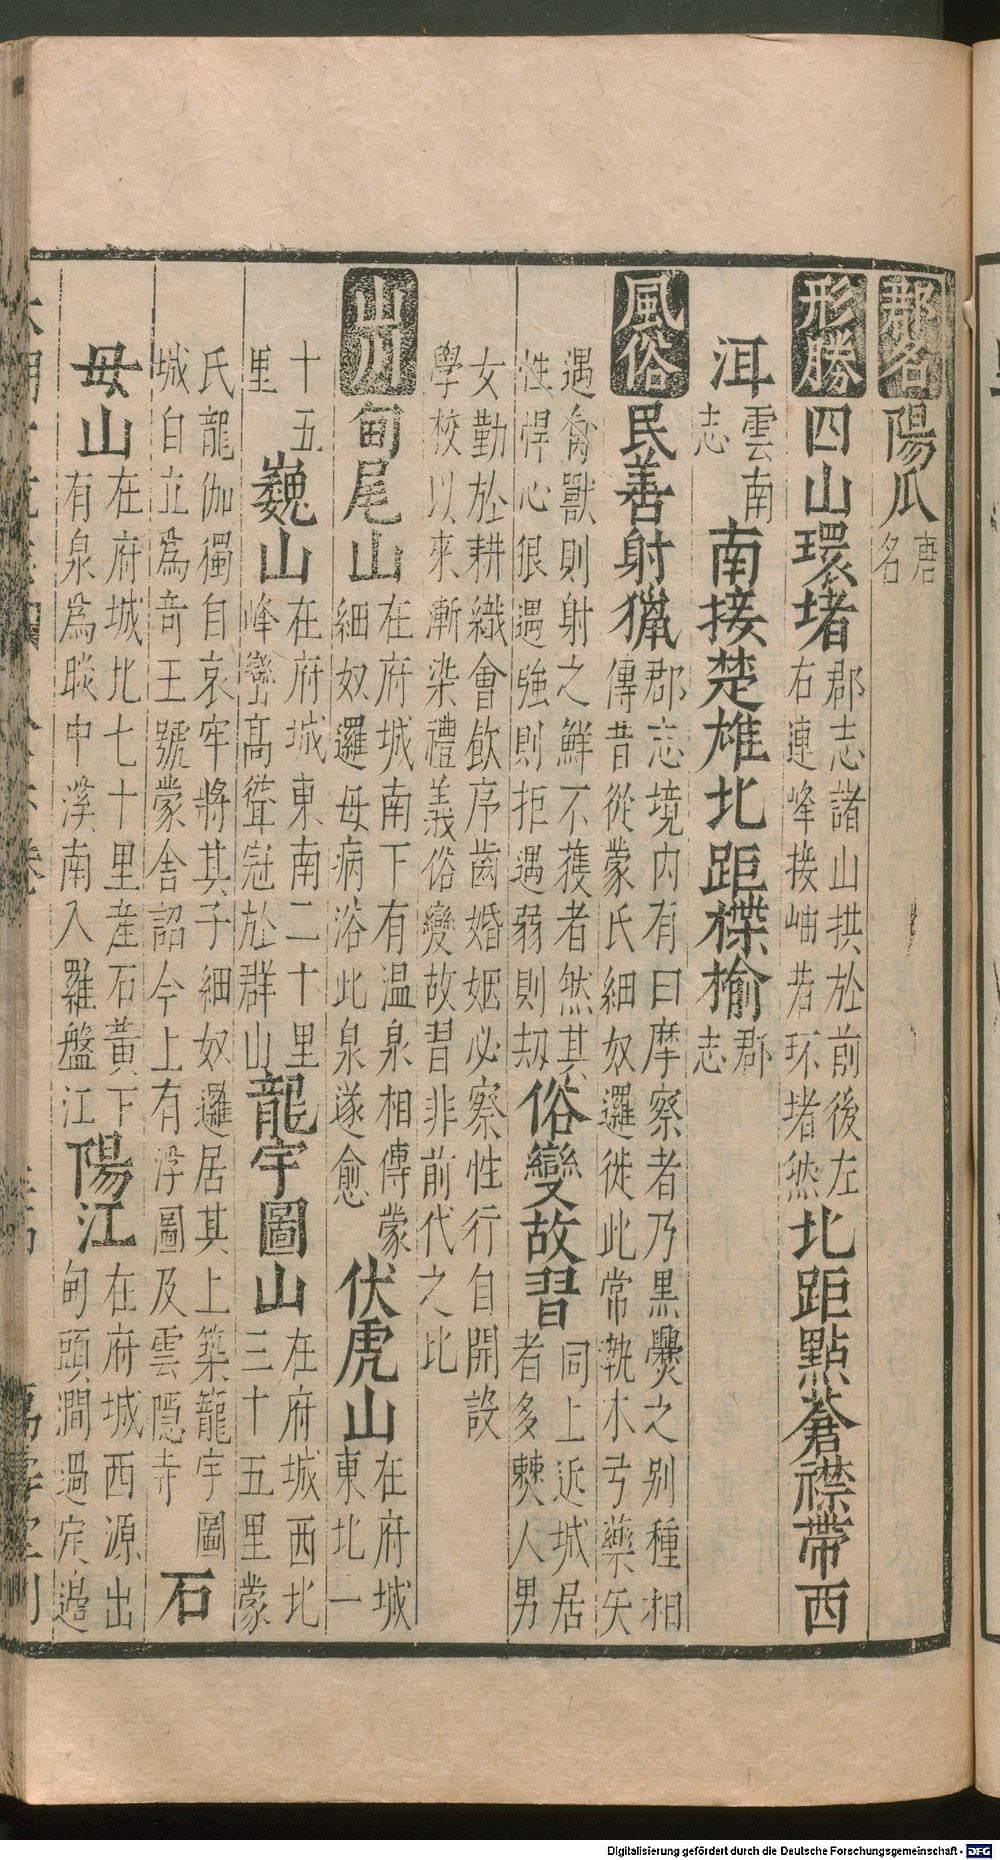 郡名陽瓜唐名
形勝四山環堵郡志諸山拱於前後左右連峰接岫若环堵然北距點蒼襟帶西
洱雲南志南接楚雄北距楪榆郡志
風俗民善射獵郡志境内有曰摩察者乃黑爨之别種相傳昔從蒙氏細奴邏徙此常執木弓藥矢
遇禽獸則射之鮮不獲者然其性悍心狠遇強則拒遇弱則刼俗變故習同上近城居者多僰人男
女勤於耕織會飲序齒婚姻必察性行自開設學校以來漸染禮義俗變故習非前代之比
山川甸尾山在府城南下有温泉相傳蒙細奴邏母病浴此泉遂愈伏虎山在府城東北一
十五里巍山在府城東南二十里峰巒高聳冠於群山龍宇圖山在府城西北三十五里蒙
氏龍伽獨自哀牢將其子細奴邏居其上築龍宇圖城自立為奇王號蒙舍詔今上有浮圖及雲隠寺石
母山在府城北七十里産石黃下有泉為睒中溪南入羅盤江陽江在府城西源出甸頭澗過定邊
Digitalisierung gefördert durch die Deutsche Forschungsgemeinschaft - DFG